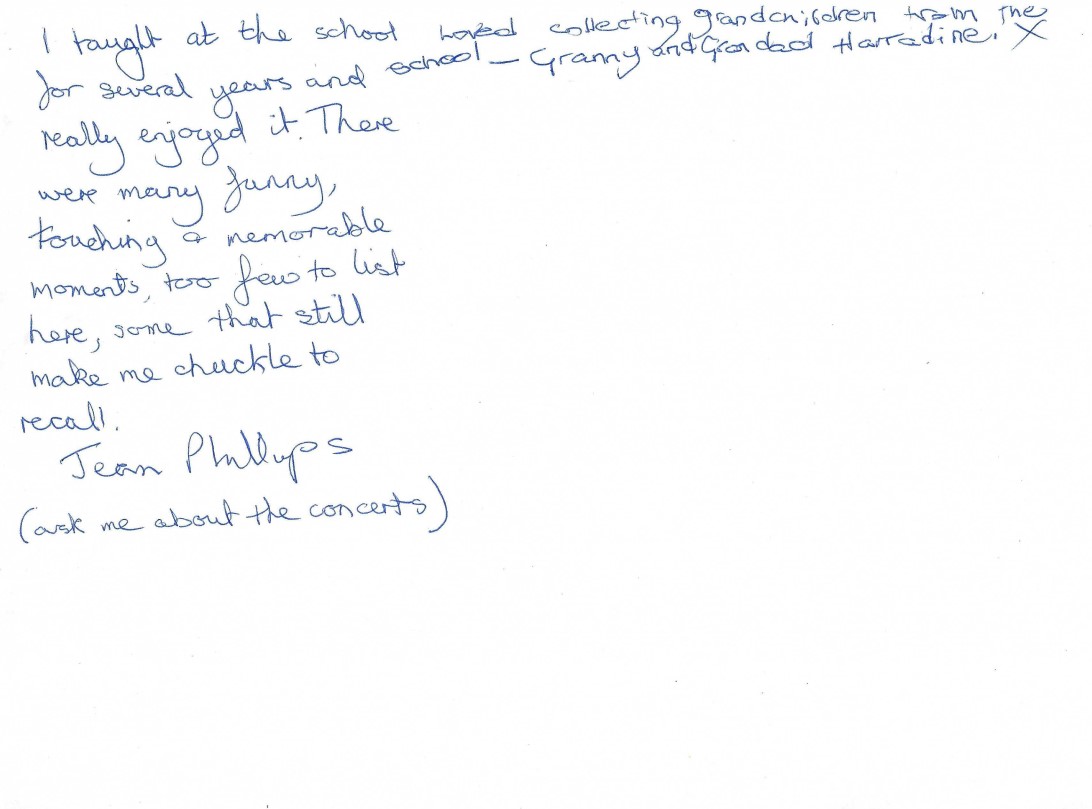 I taught at the school
for several years and
really enjoyed it. There
were many funny,
touching & memorable
moments, too few to list
here, some that still
make me chuckle to
recall.
Jean Phillips
(ask me about the concerts)
Loved collecting grandchildren from the
school - Granny and Grandad Harradine. X